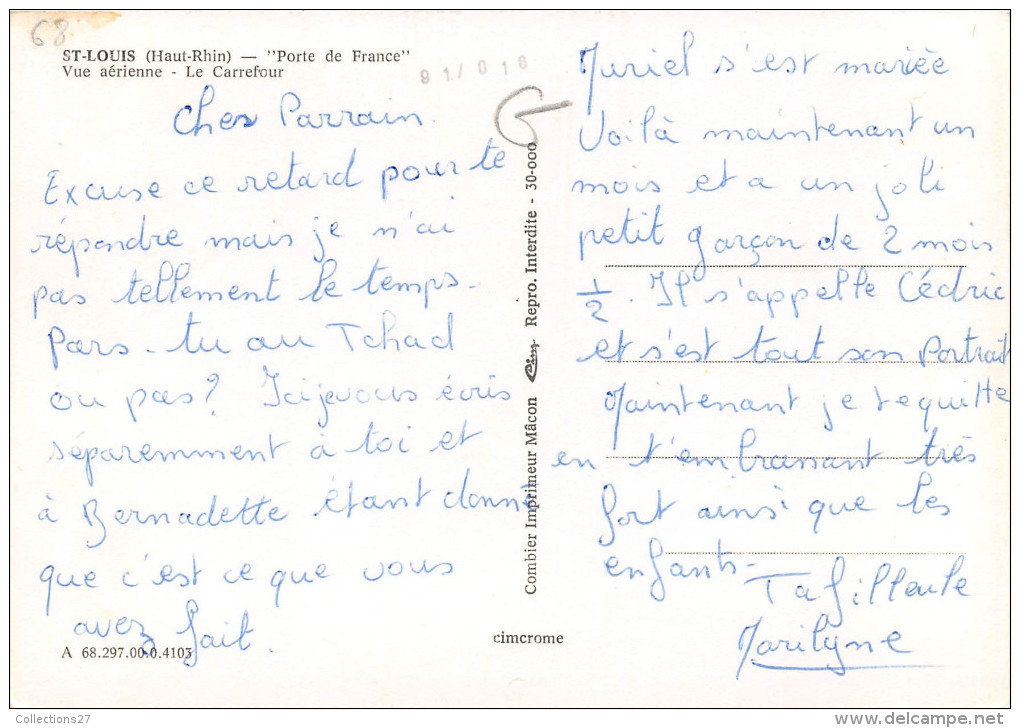 68
ST-LOUIS (Haut-Rhin) — "Porte de France"
Vue aérienne - Le Carrefour
91/016
Cher Parrain.
Excuse ce retard pour te
répondre mais je n'ai
pas tellement le temps.
Pars-tu au Tchad
ou pas? Ici je vous écris
séparemment à toi et
à Bernadette étant donné
que c'est ce que vous
avez fait.
A 68.297.00.0.4103
Combier Imprimeur Mâcon Cim Repro. Interdite - 30-000
cimcrome
Muriel s'est mariée
Voilà maintenant un
mois et a un joli
petit garçon de 2 mois
1/2. Il s'appelle Cédric
et s'est tout son portrait
Maintenant je te quitte
en t'embrassant très
fort ainsi que les
enfants-
Ta filleule
Marilyne
Collections27
http://www.delcampe.net